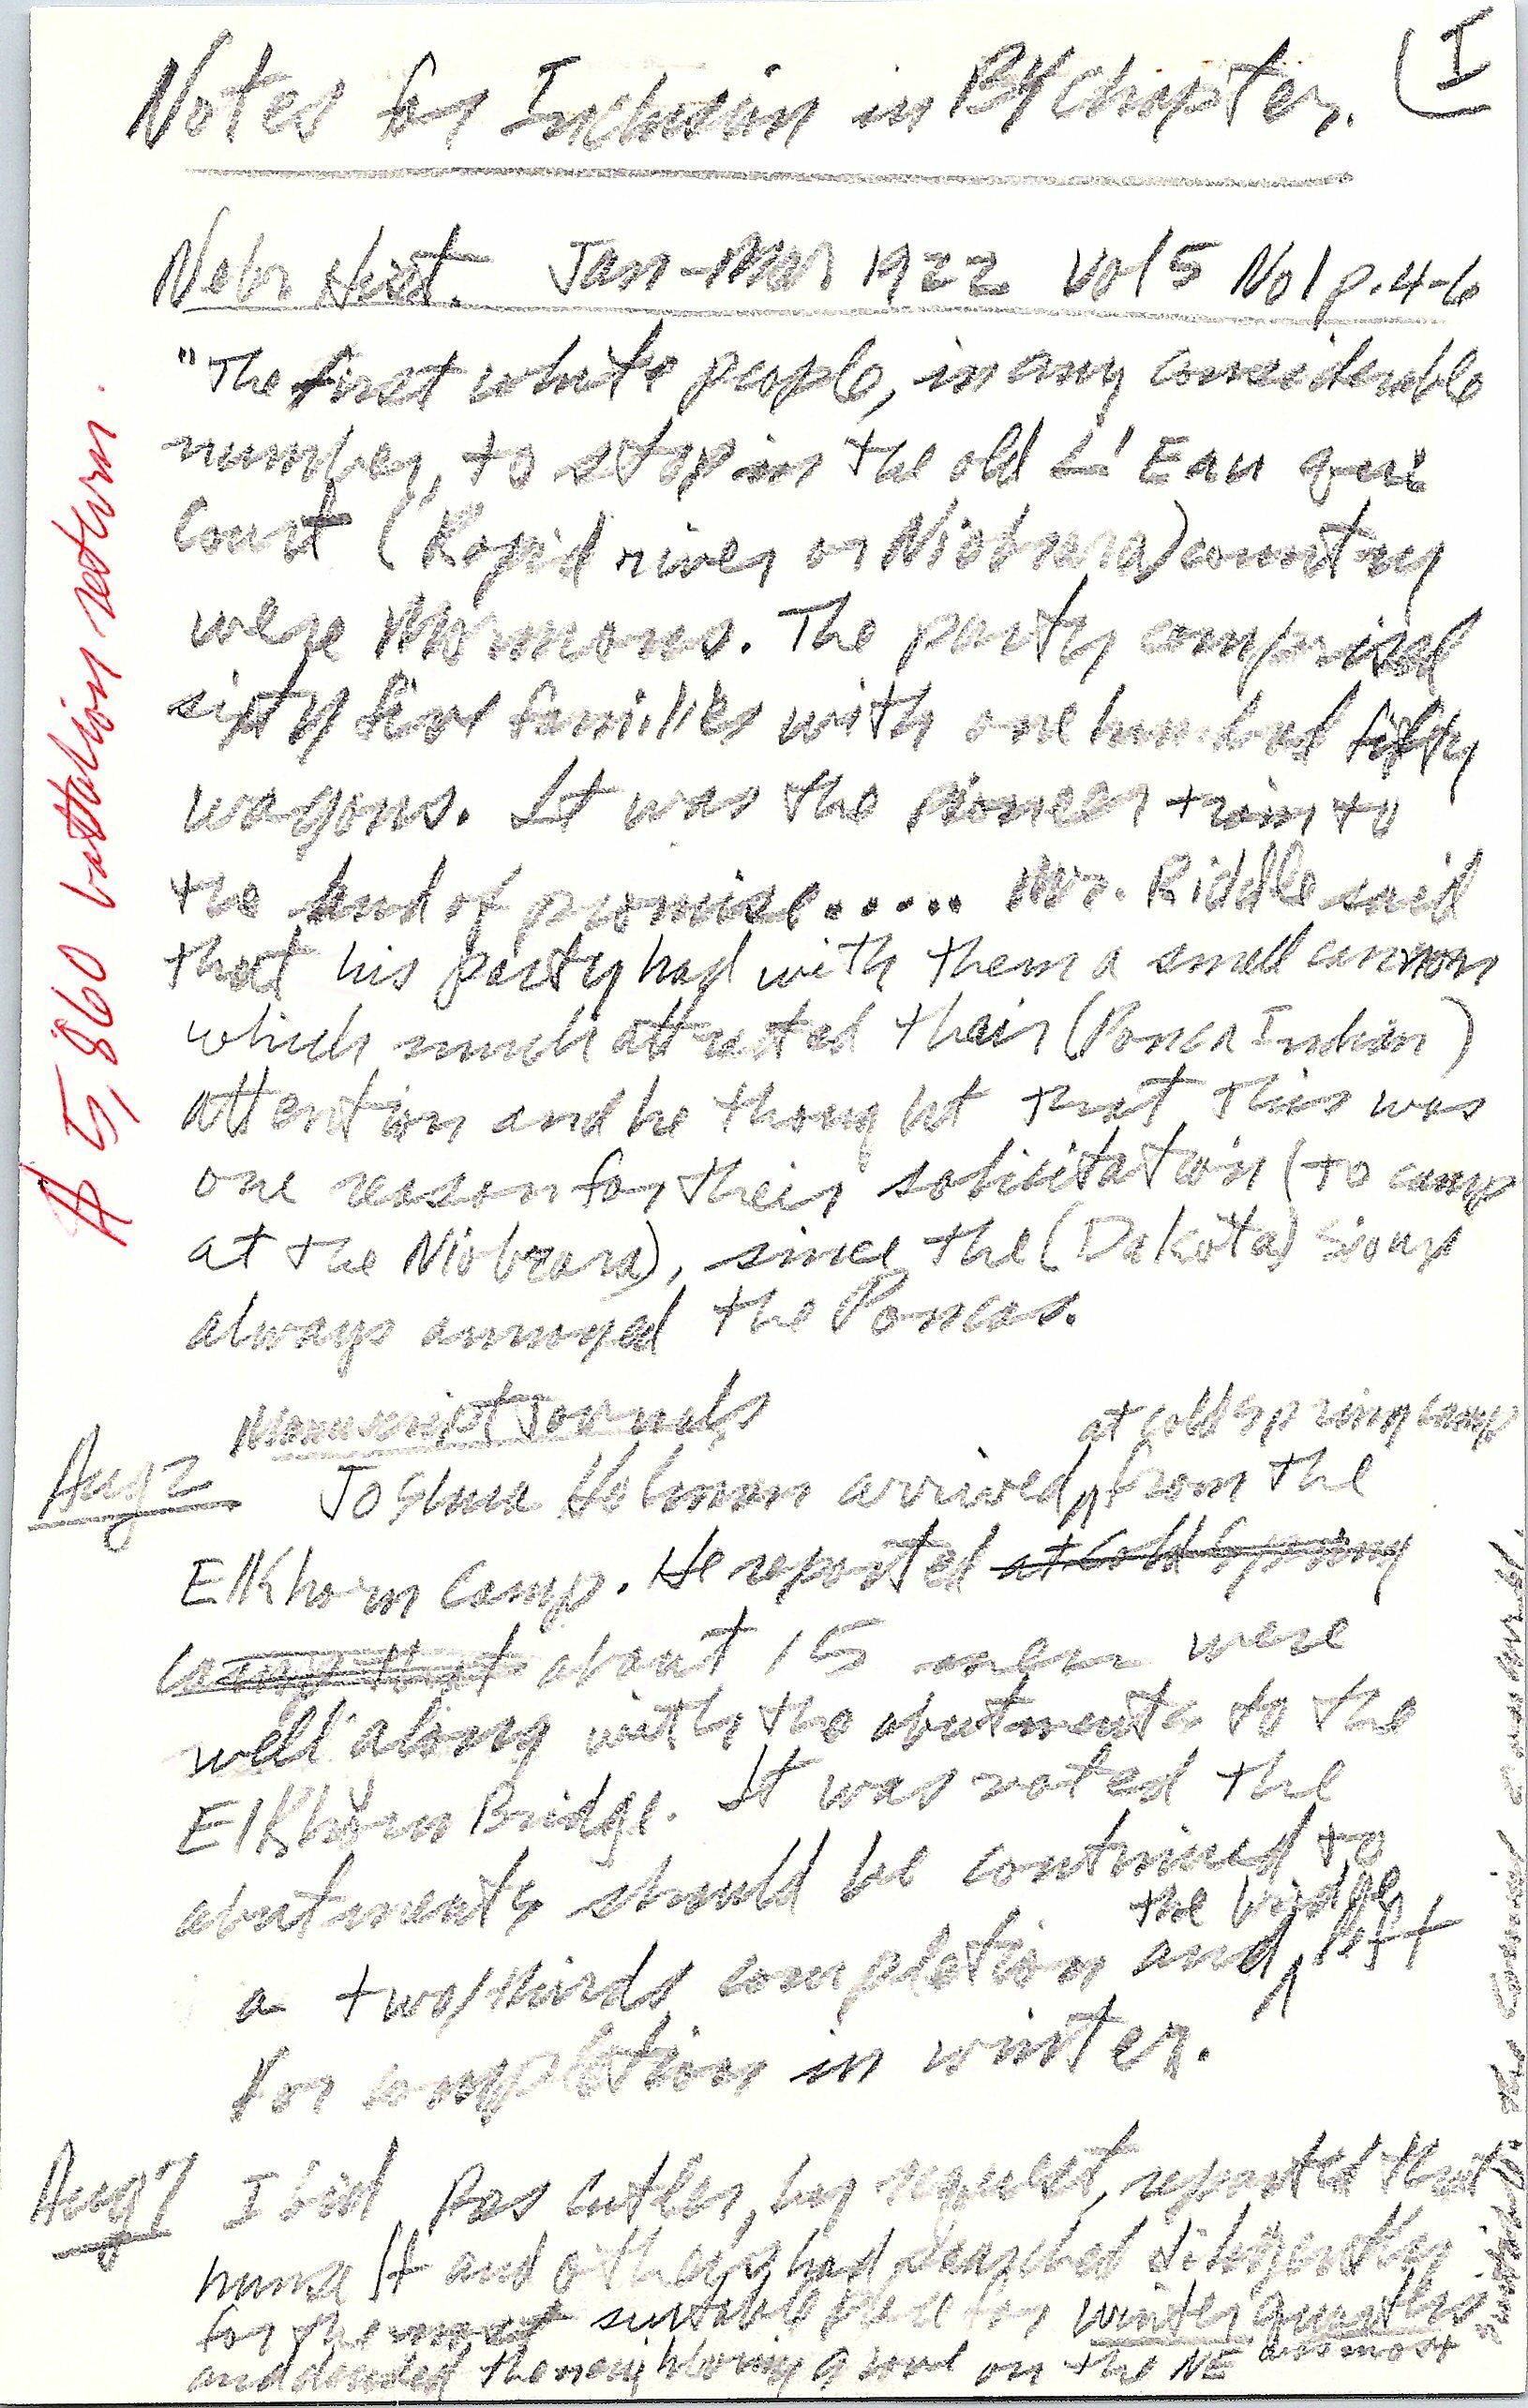 Notes for Inclusion in BY Chapter. (I
Nebr Hist. Jan-Mar 1922 Vol 5 No 1 p. 4-6
"The first white people, in any considerable
number, to stop in the old L'Eau qui
Court (Rapid river or Niobrara) country
were Mormons. The party comprised
sixty five families with one hundred fifty
wagons. It was the pioneer train to
the land of promise..... Mr. Riddle said
that his party had with them a small cannon
which much attracted their (Ponca Indian)
attention and he thought that this was
one reason for their solicitation (to camp
at the Niobrara), since the (Dakota) Sioux
always annoyed the Poncas.
$ 5,860 battalion return.
Manuscript Journals
at cold spring camp
Aug 2 Joshua Holman arrived ^ from the
Elkhorn Camp. He reported at Cold Spring
Camp that about 15 men were
well along with the abutments to the
Elkhorn Bridge. It was voted the
abutments should be continued to
the bridge
a two/thirds completion and ^ left
for completion in winter.
Aug 7 Ibid Pres Cutler, by request, reported that
himself and others had searched diligently
for the most suitable place for winter quarters
and decided the neighboring grove on the NE was most
suitable. the Council